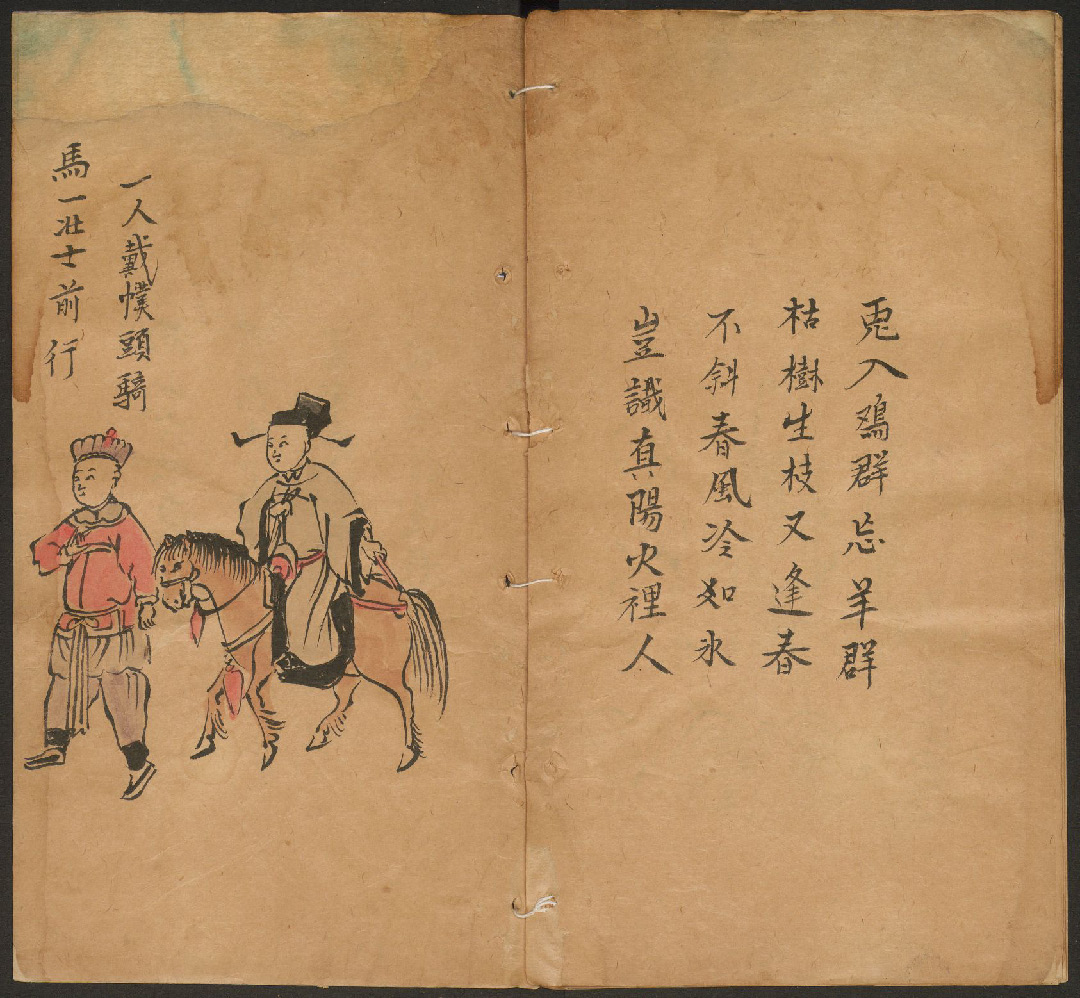 兎入鷄群忘羊群
枯樹生枝又逢春
不斜春風冷如氷
豈識真陽火裡人
一人戴幞頭騎
馬一壯士前行